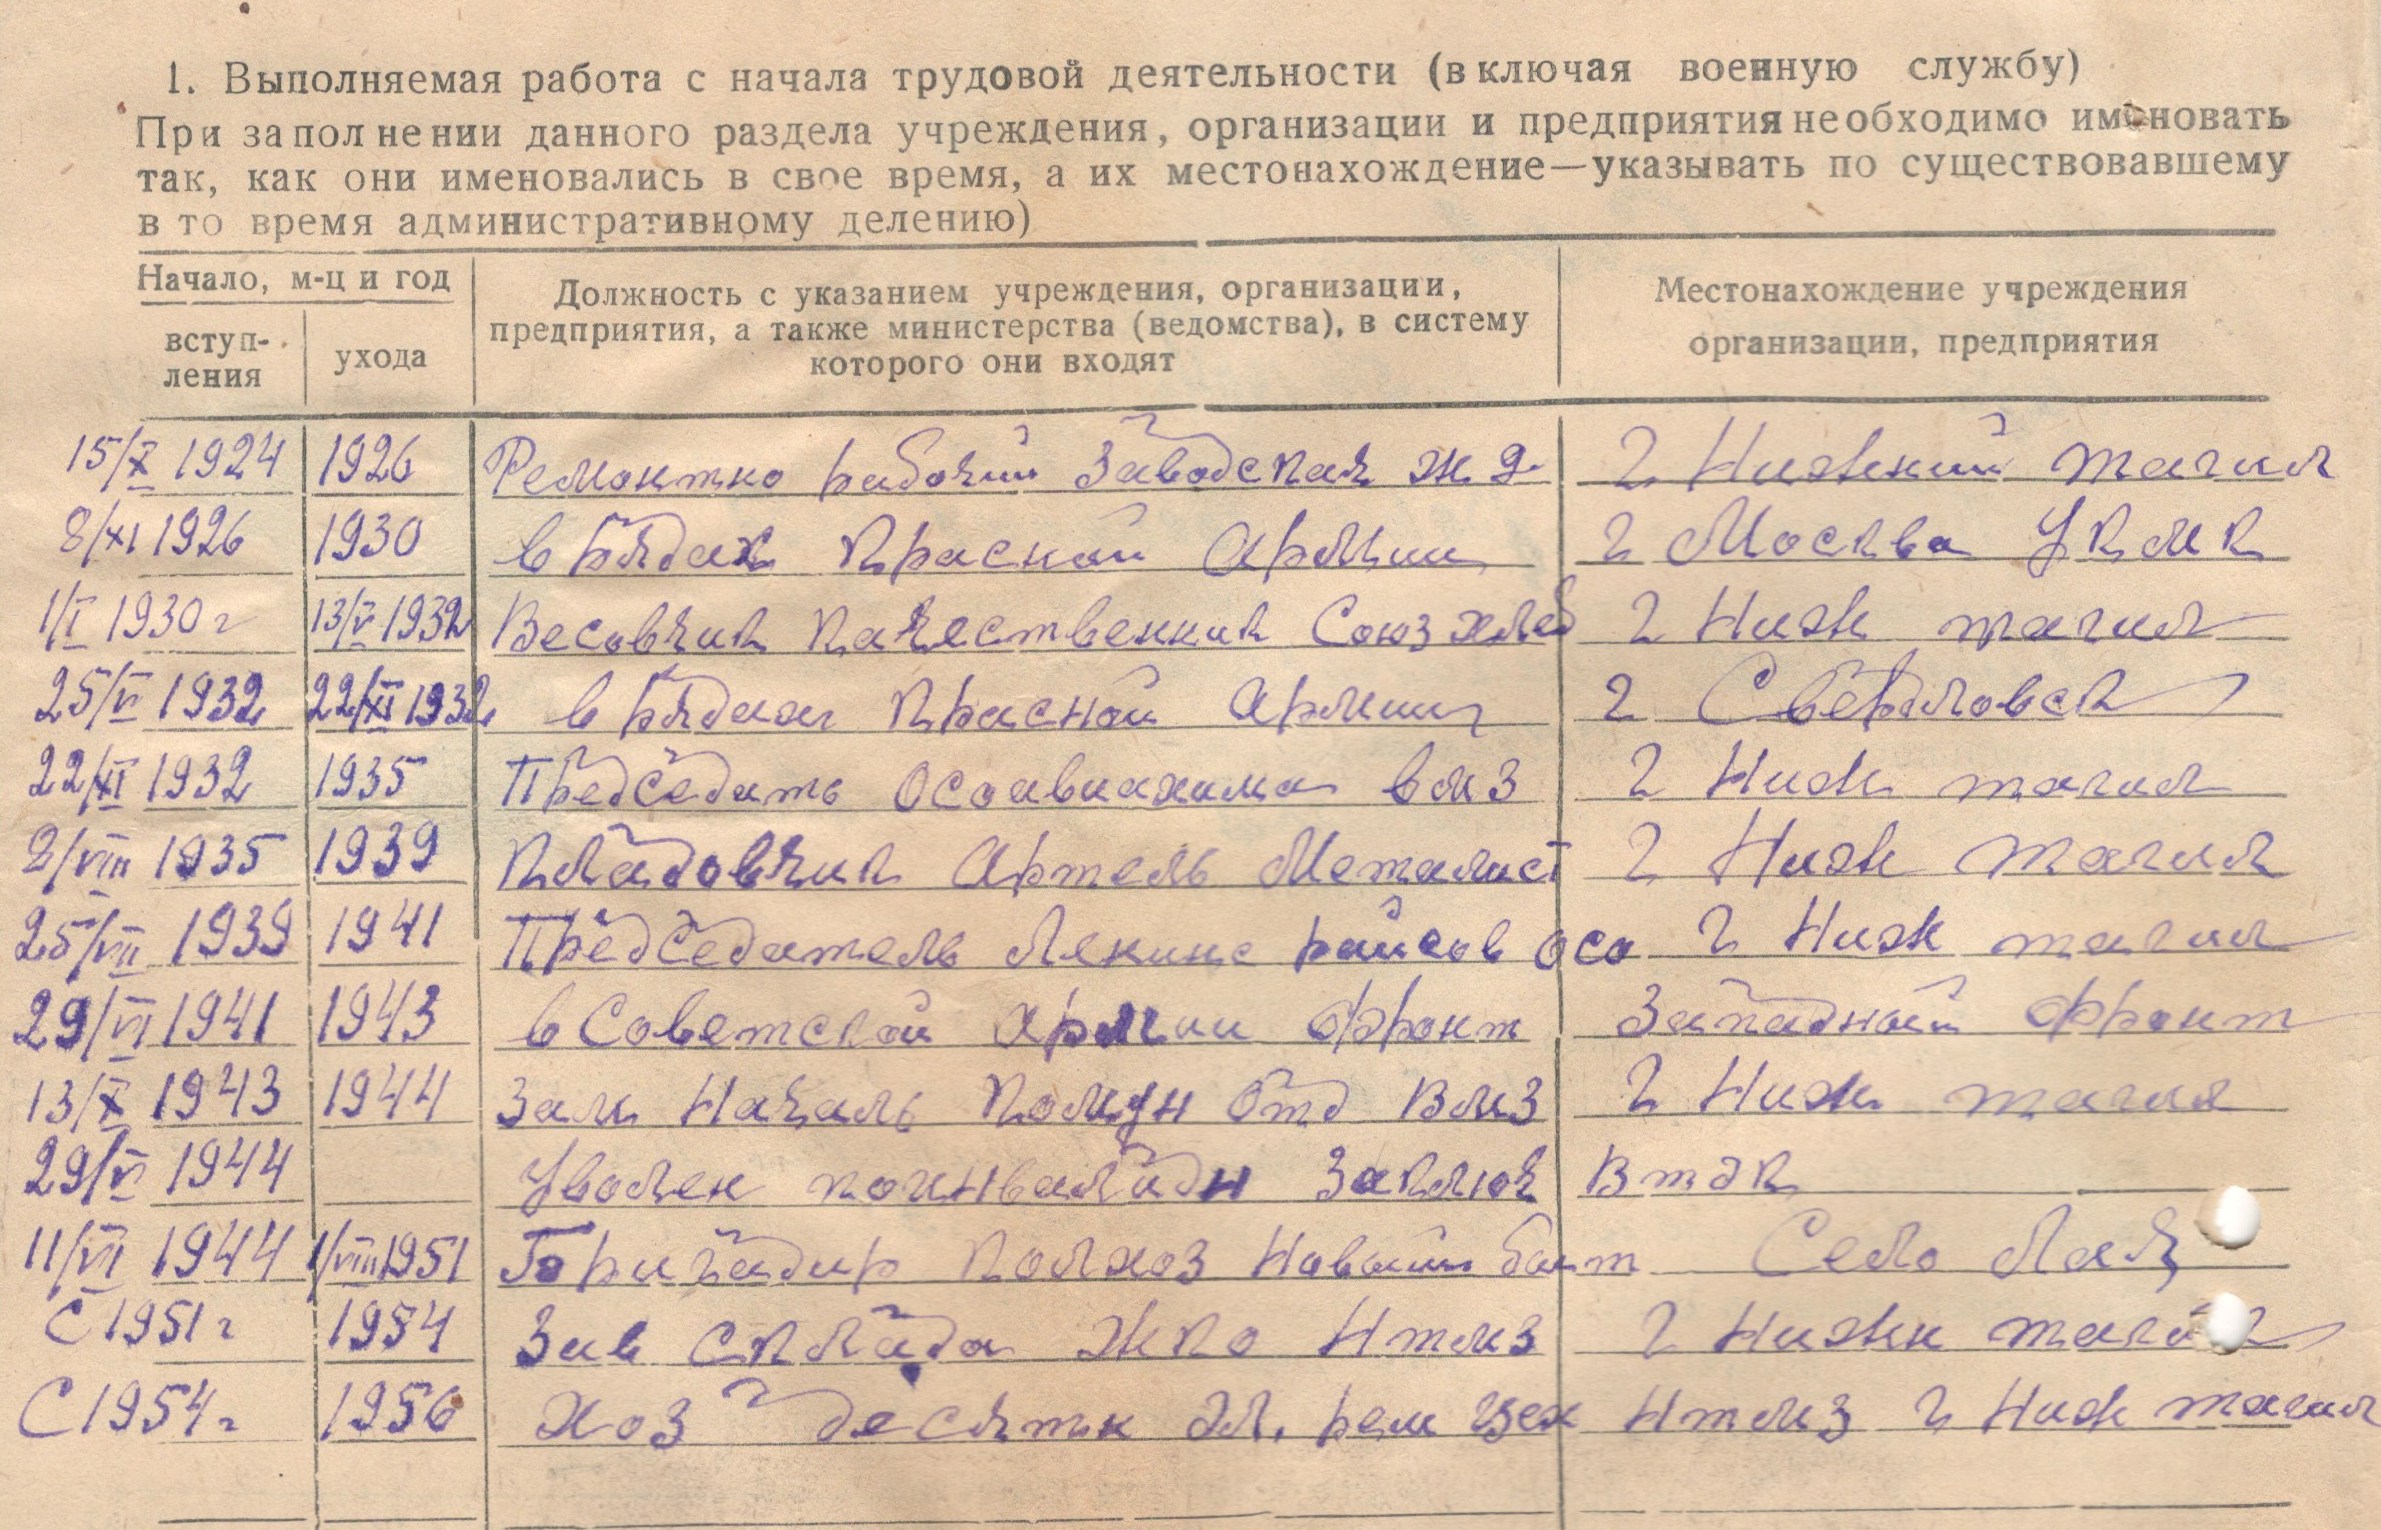 1. Выполняемая работа с начала трудовой деятельности (включая военную службу)
При заполнении данного раздела учреждения, организации и предприятия необходимо именовать
так, как они именовались в свое время, а их местонахождение—указывать по существовавшему
в то время административному делению)
Начало, м-ц и год
вступ-
ления
ухода
Должность с указанием учреждения, организации,
предприятия, а также министерства (ведомства), в систему
которого они входят
Местонахождение учреждения
организации, предприятия
15/X 1924 1926 Ремонтно рабочий Заводская ж д г Нижний Тагил
8/XI 1926 1930 в рядах Красной Армии г Москва УКМК
1/I 1930 г 13/V 1932 Весовчик Качественник Союз хлеб г Ниж Тагил
25/V 1932 22/XI 1932 в рядах Красной Армии г Свердловск
22/XI 1932 1935 Председать Осоавиахима ВМЗ г Ниж Тагил
8/VIII 1935 1939 Кладовчик Артель Металист г Ниж Тагил
25/VII 1939 1941 Председатель Ленинс райсов осо г Ниж Тагил
29/VI 1941 1943 в Советской Армии Фронт Западный Фронт
13/X 1943 1944 Зам Началь Комун Отд ВМЗ г Ниж Тагил
29/V 1944 Уволен по инвалидн Заключ ВТЭК
11/VI 1944 1/VIII 1951 Бригадир Колхоз Новый быт Село Лая
С 1951 г 1954 Зав склада ЖКО НТМЗ г Нижн Тагил
С 1954 г 1956 Хоз десятн Эл. рем цех НТМЗ г Ниж Тагил